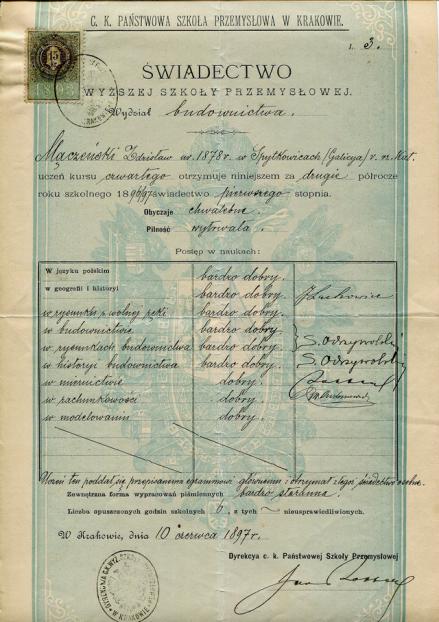 C. K. PAŃSTWOWA SZKOŁA PRZEMYSŁOWA W KRAKOWIE.
L. 3.
ŚWIADECTWO
WYŻSZEJ SZKOŁY PRZEMYSŁOWEJ.
Wydział budownictwa.
Mączeński Zdzisław ur. 1878 r. w Spytkowicach (Galicya) r. rz. kat.
uczeń kursu czwartego otrzymuje niniejszem za drugie półrocze
roku szkolnego 1896/97 świadectwo pierwszego stopnia.
Obyczaje chwalebne.
Pilność wytrwała.
Postęp w naukach:
W języku polskim bardzo dobry.
w geografii i historyi bardzo dobry.
w rysunku z wolnej ręki bardzo dobry.
w budownictwie bardzo dobry.
w rysunkach budownictwa bardzo dobry. S. Odrzywolski
w historyi budownictwa bardzo dobry. S. Odrzywolski
w miernictwie dobry.
w rachunkowości dobry.
w modelowaniu dobry.
Uczeń ten poddał się przepisanemu egzaminowi głównemu i otrzymał z tegoż świadectwo osobne.
Zewnętrzna forma wypracowań piśmiennych bardzo staranna.
Liczba opuszczonych godzin szkolnych 6, z tych ~ nieusprawiedliwionych.
W Krakowie, dnia 10 czerwca 1897 r.
Dyrekcya c. k. Państwowej Szkoły Przemysłowej